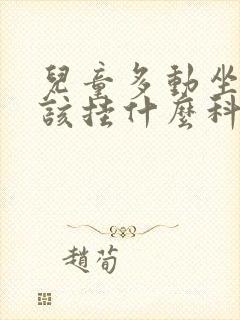 兒童多動坐
該掛什麼科
趙荀